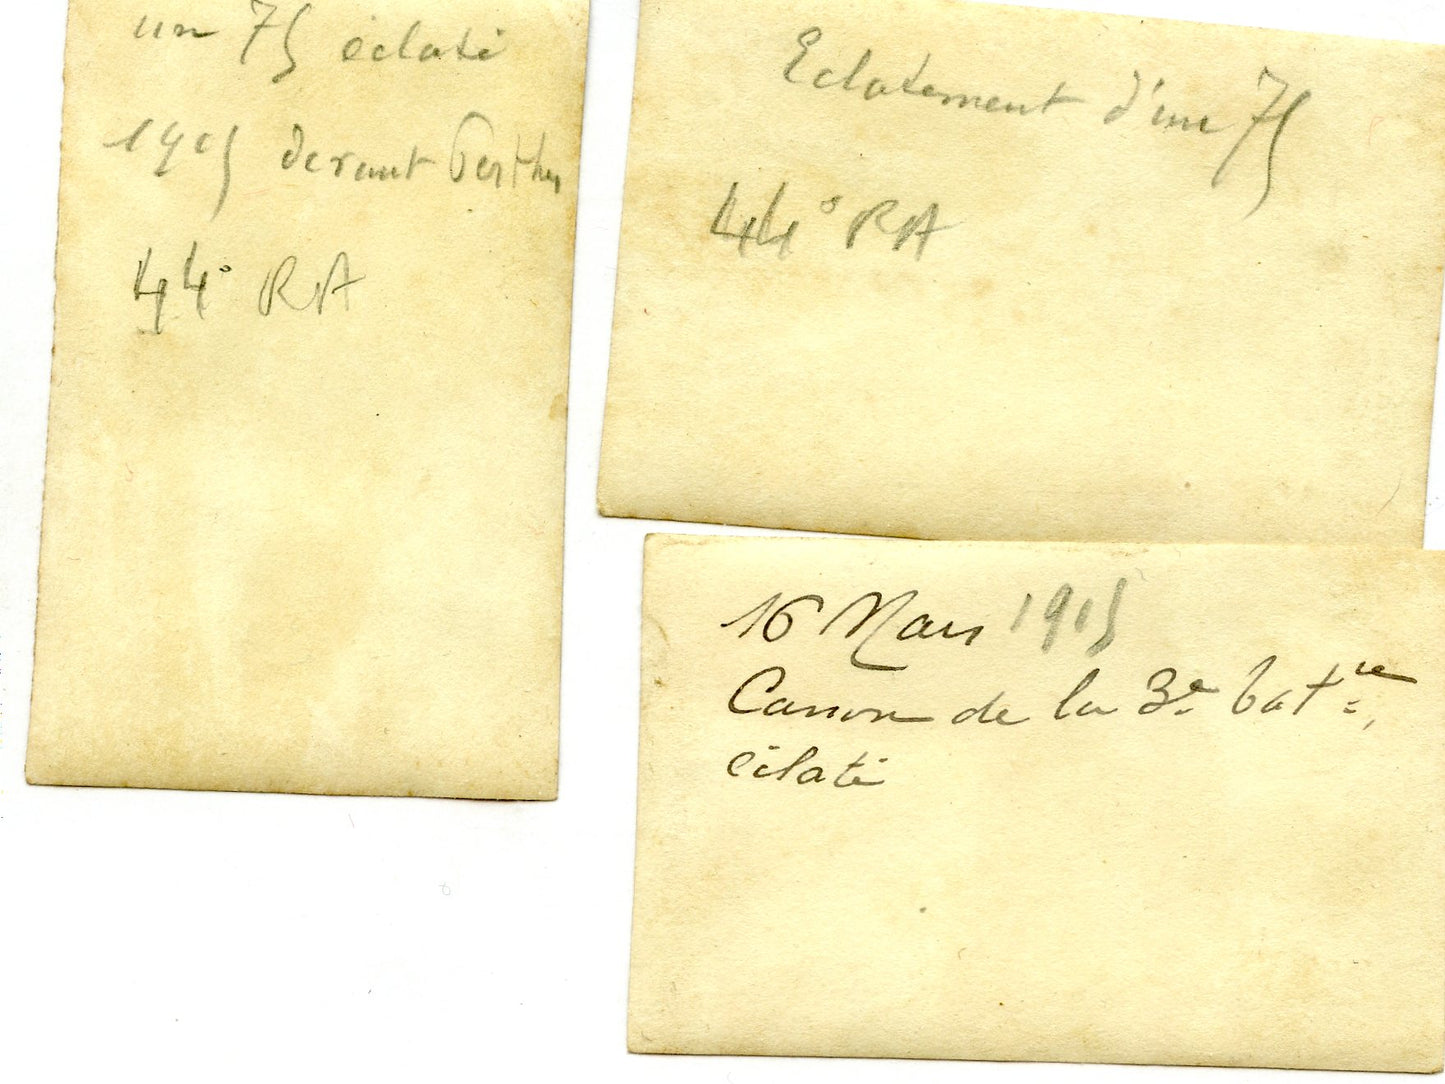 un 75 éclaté
1915 devant Perthes
44° RA
Eclatement d'un 75
44° RA
16 Mars 1915
Canon de la 3e batrie,
éclaté